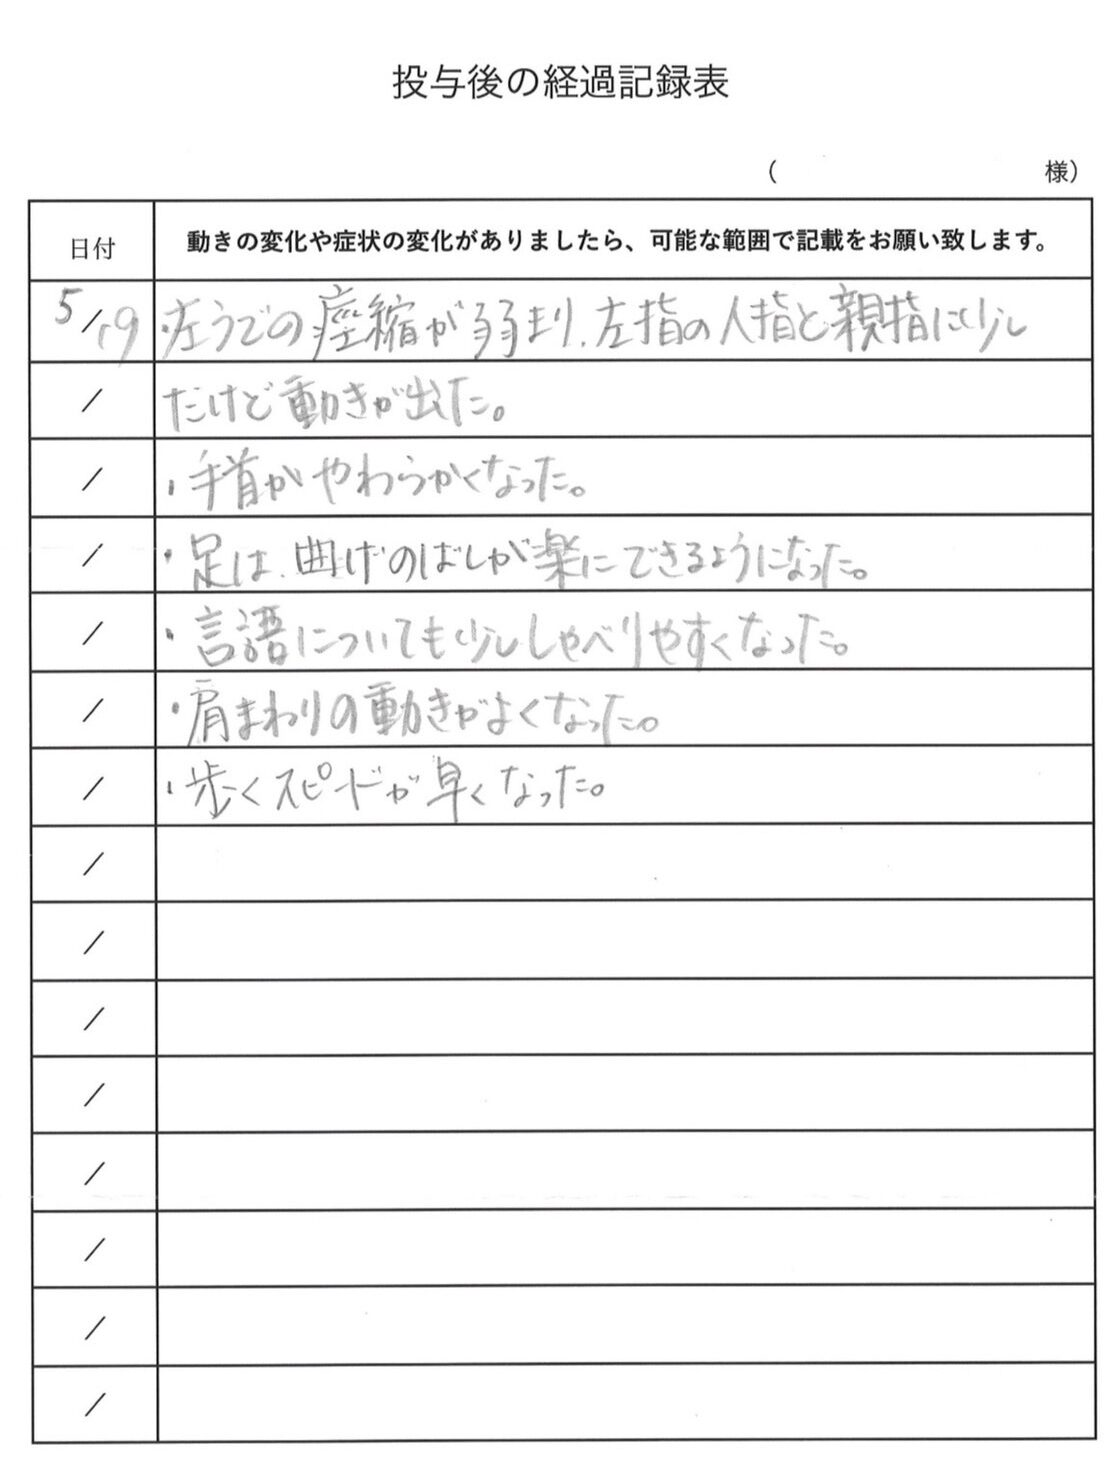 投与後の経過記録表
( 様)
日付 動きの変化や症状の変化がありましたら、可能な範囲で記載をお願い致します。
5/19 ・左うでの痙縮が弱まり、左指の人指と親指に少し
/ だけど動きが出た。
/ ・手首がやわらかくなった。
/ ・足は、曲げのばしが楽にできるようになった。
/ ・言語についても少ししゃべりやすくなった。
/ ・肩まわりの動きがよくなった。
/ ・歩くスピードが早くなった。
/
/
/
/
/
/
/
/